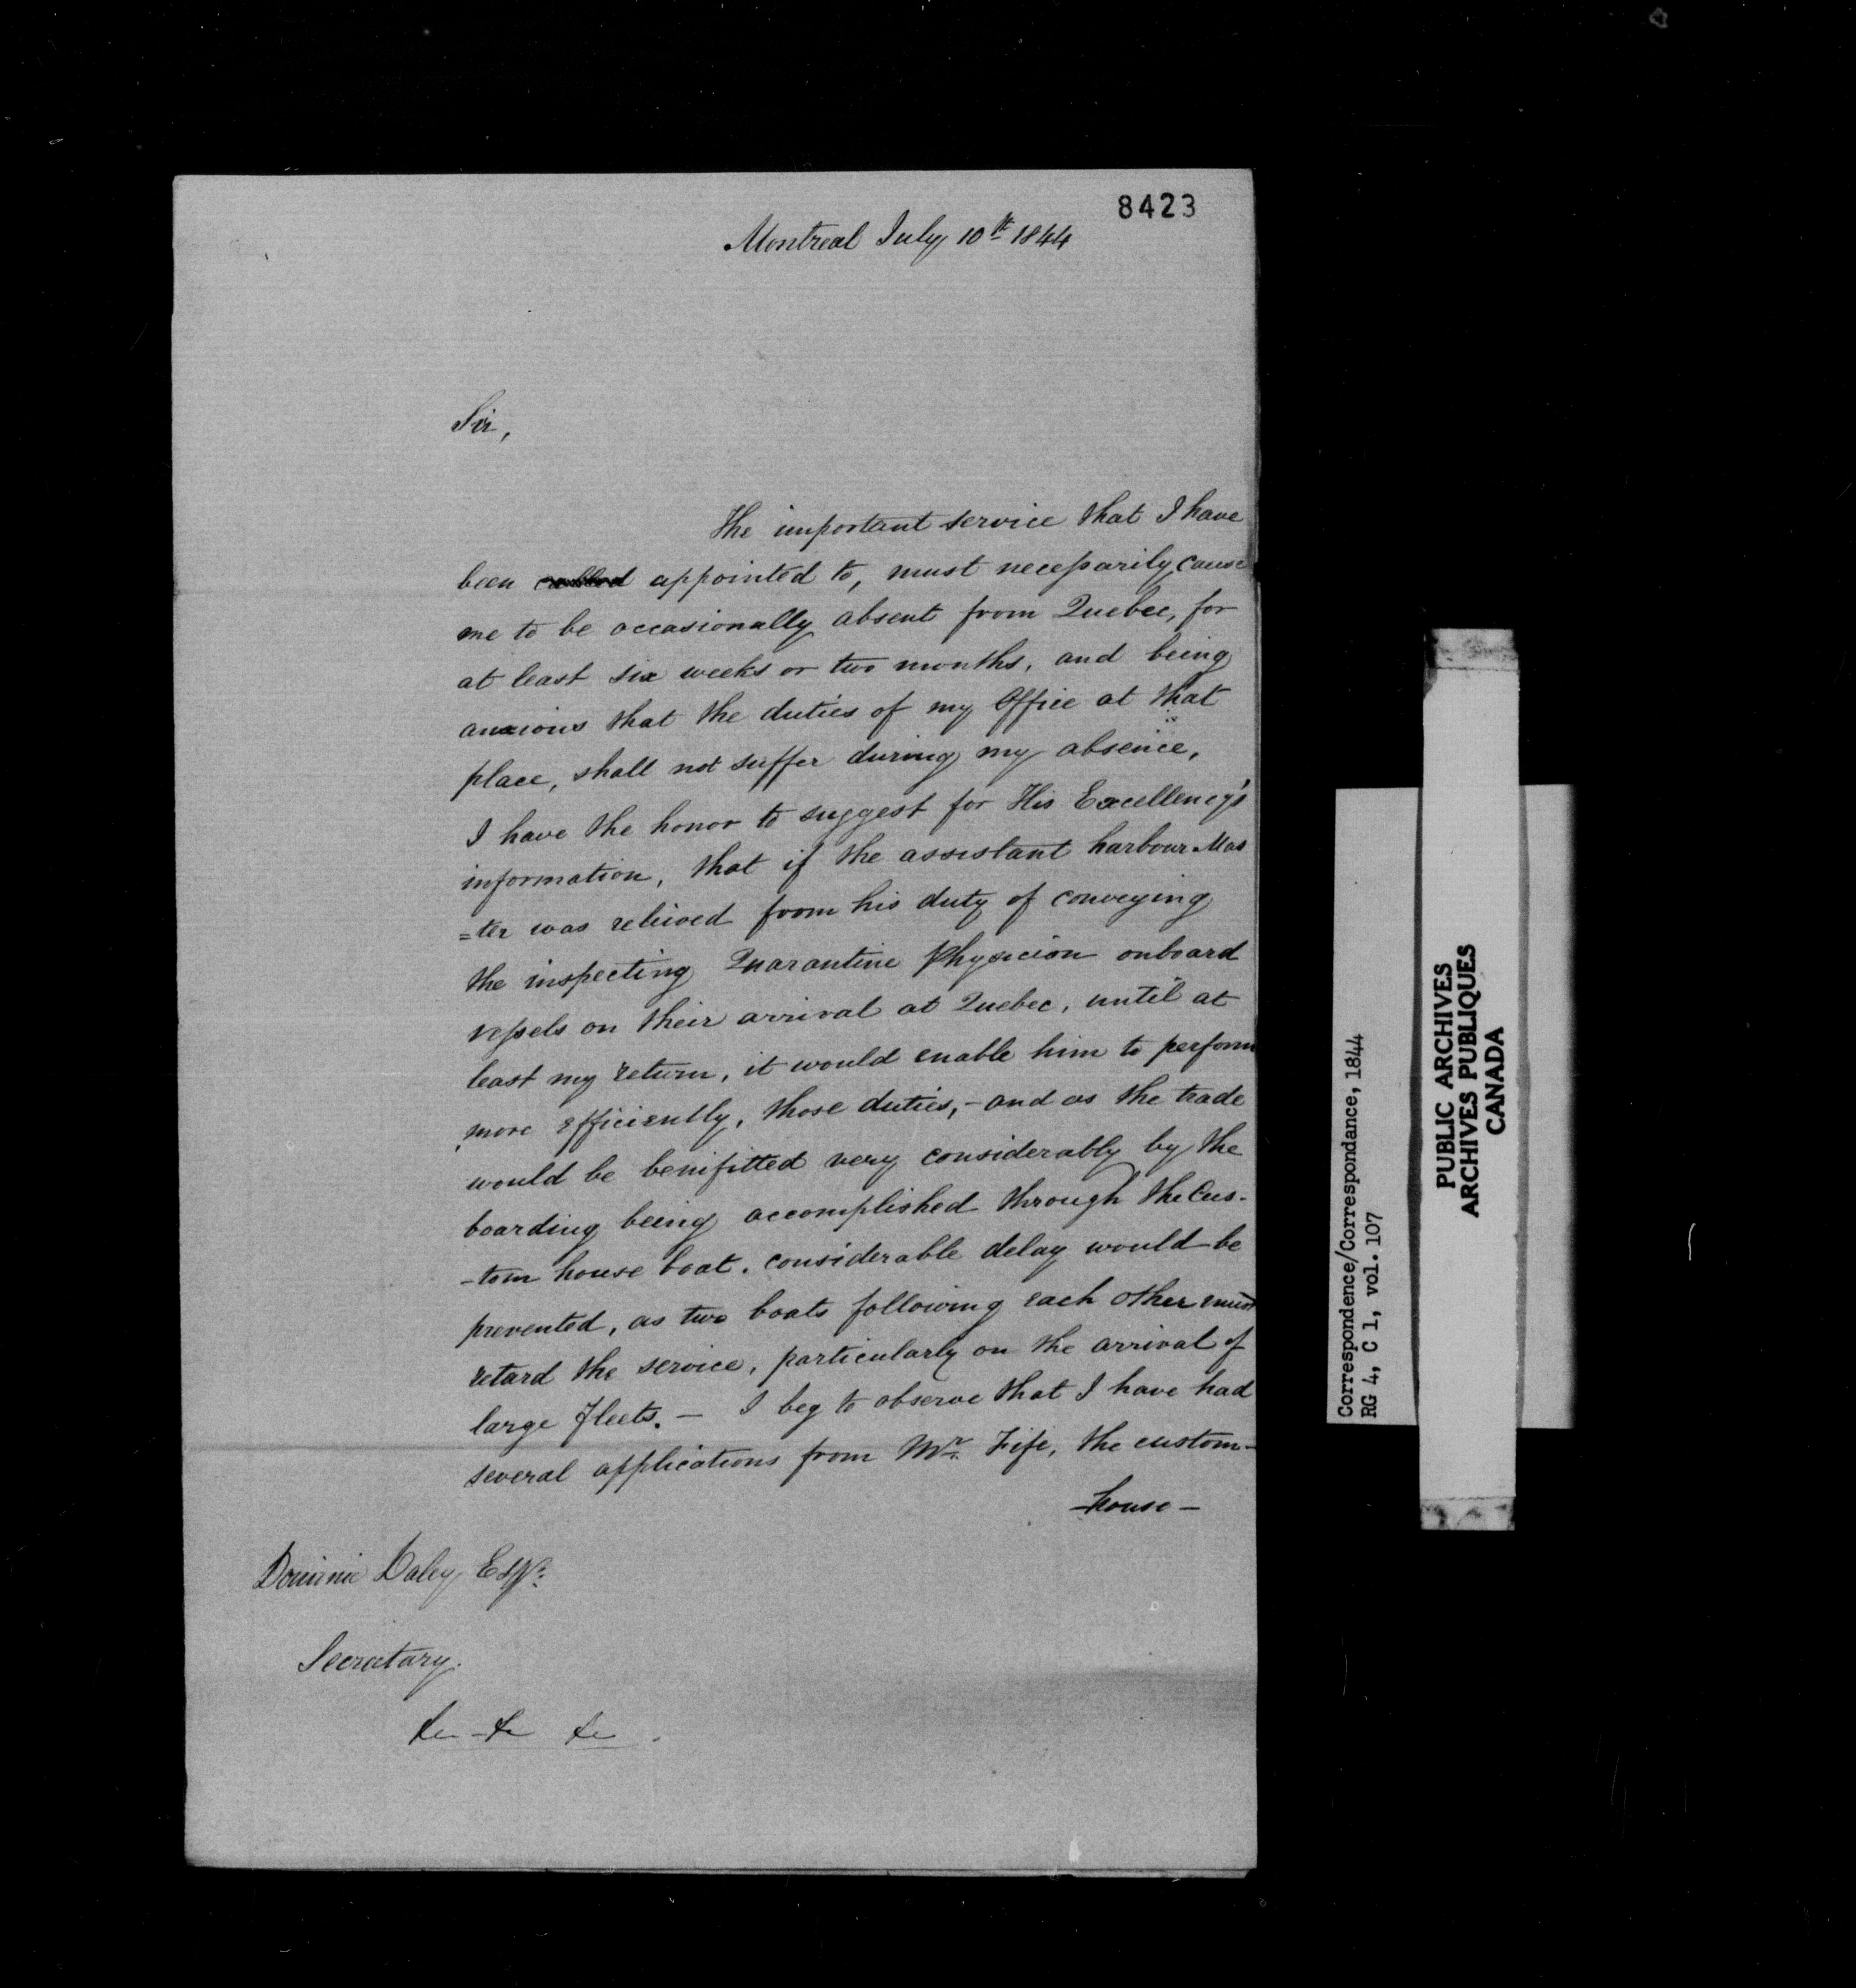 8423
Montreal July 10th 1844
Sir,
The important service that I have
been called appointed to, must necessarily cause
me to be occasionally absent from Quebec, for
at least six weeks or two months, and being
anxious that the duties of my Office at that
place, shall not suffer during my absence,
I have the honor to suggest for His Excellency's
information, that if the assistant harbour Mas
=ter was relieved from his duty of conveying
the inspecting Quarantine Physician onboard
vessels on their arrival at Quebec, until at
least my return, it would enable him to perform
more efficiently, those duties,- and as the trade
would be benifitted very considerably by the
boarding being accomplished through the Cus-
-tom house boat. considerable delay would be
prevented, as two boats following each other must
retard the service, particularly on the arrival of
large fleets. — I beg to observe that I have had
several applications from Mr. Fife, the custom-
-house-
Dominic Daley Esqr.
Secretary.
&c - &c &c .
Correspondence/Correspondance, 1844
RG 4, C 1, vol. 107
PUBLIC ARCHIVES
ARCHIVES PUBLIQUES
CANADA